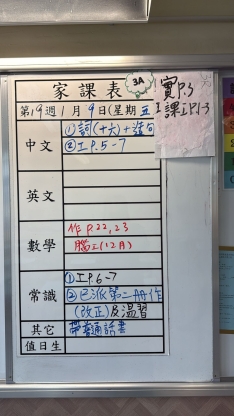 家課表
3A
第19週1月9日(星期五)
中文
①詞(十六)+造句
②工P.5-7
英文
數學
作P.22,23
腦工(12月)
常識
①工P.6-7
②已派第二冊作
(改正)及溫習
其它
帶普通話書
值日生
P.3
課工P.1-3